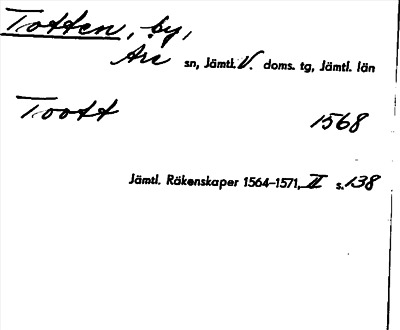 Totten, by,
Åre sn, Jämtl. V. doms. tg, Jämtl. län
Toott 1568
Jämtl. Räkenskaper 1564–1571, II s. 138